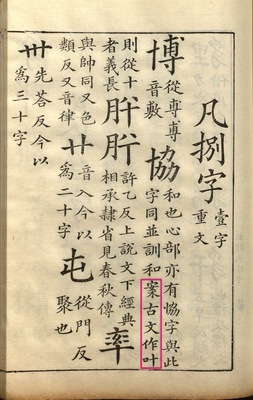 凡捌字壹字重文
博從尃尃音敷協和也心部亦有恊字與此字同並訓和案古文作叶
則從十者義長肸肹許乙反上說文下經典相承隸省見春秋傳率
與帥同又色類反又音律廿音入今以爲二十字屯從門反聚也
卅先荅反今以爲三十字